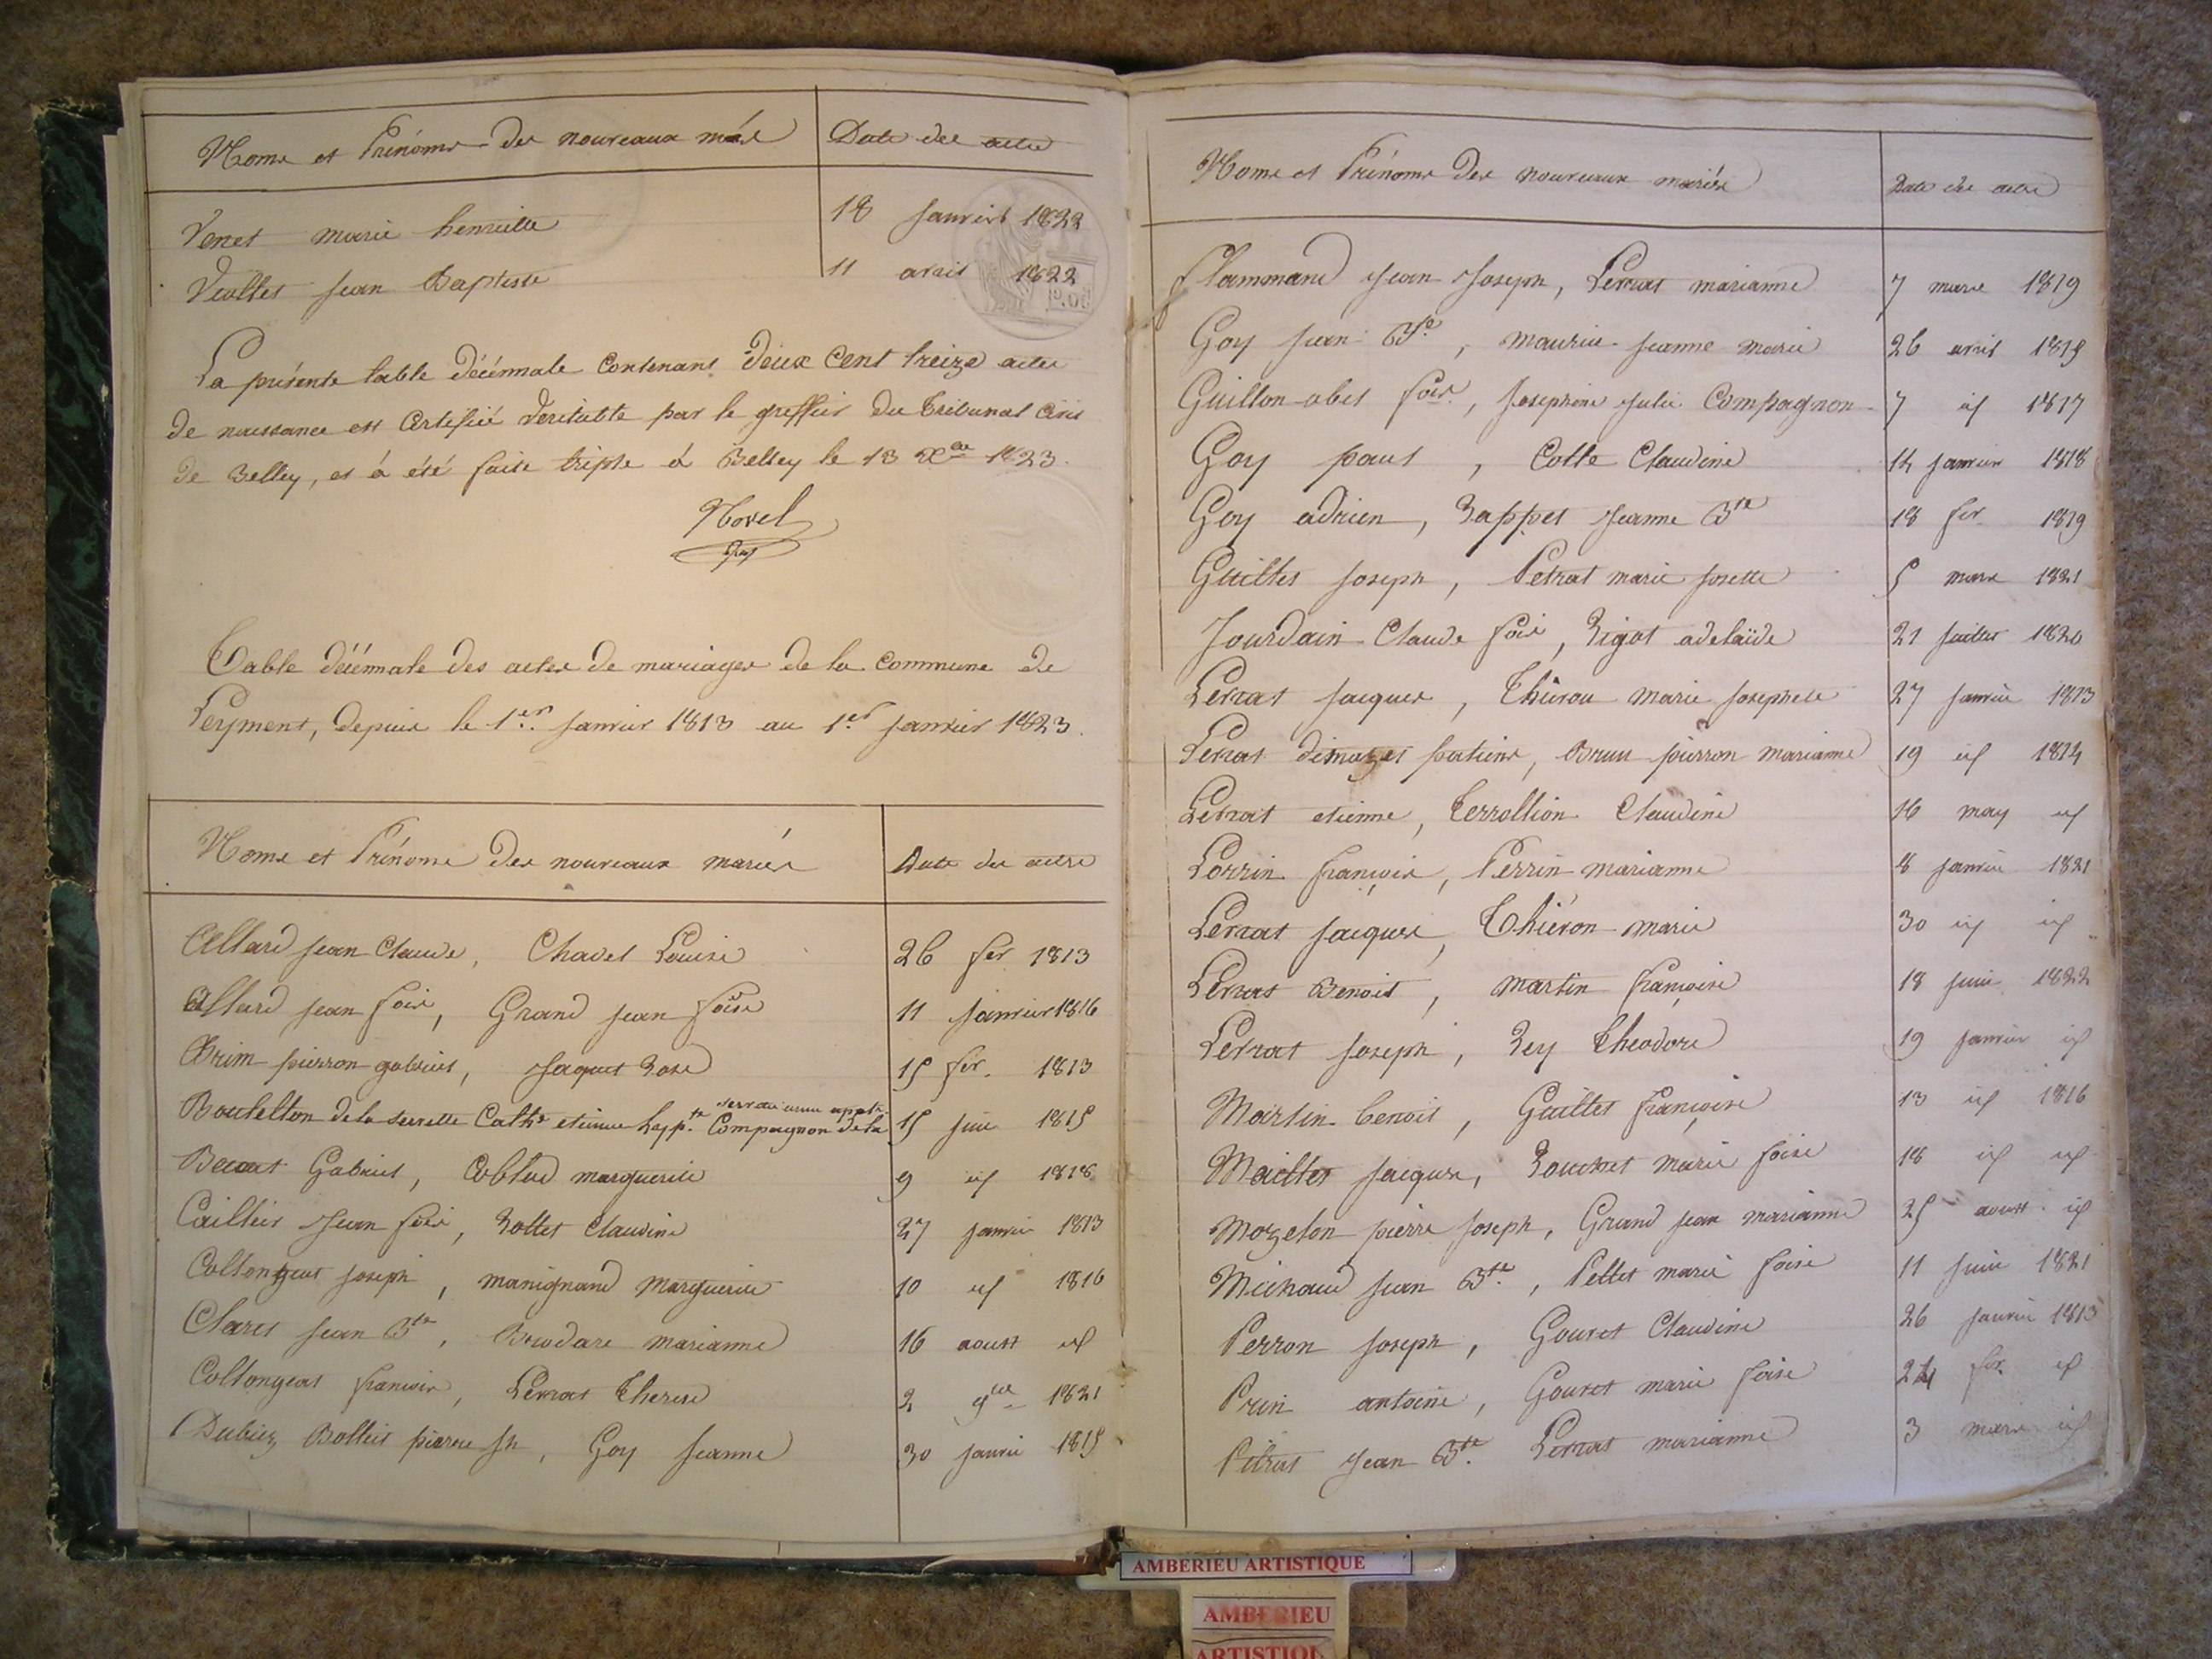 Noms et Prénoms des nouveaux nés Date des actes
Venet marie henriette 18 janvier 1822
Viollet jean Baptiste 11 avril 1822
La présente table décénnale contenant deux cent treize actes
de naissance est certifiée véritable par le greffier du tribunal civil
de Belley, et à été faite triple à Belley le 13 Xbre 1823.
Novel
Table décénnale des actes de mariages de la commune de
Leyment, depuis le 1er janvier 1813 au 1er janvier 1823.
Noms et Prénoms des nouveaux mariés Date des actes
Allard jean Claude, Chavel Louise 26 fer 1813
Allard jean fois, Grand jean foise 11 janvier 1816
Brim pierron gabriel, Jaquet Rose 15 fer. 1813
Boutellon de la serrette Cathe etienne hypte Compagnon de la 15 juin 1815
Gabriel, marguerite 9 id 1818
Caillier Jean fois, Rollet Claudine 27 janvier 1813
Collongeat joseph, manignand marguerite 10 id 1816
Claret jean Bte, Brodare marianne 16 aoust id
Collongeat francois, Lerrat Therese 2 9bre 1821
Dubiez Bollier pierre jh, Goy jeanne 30 janvier 1815
Noms et Prénoms des nouveaux mariés Date des actes
flammand Jean Joseph, Lerrat marianne 7 mars 1819
Goy jean Bte, maurier jeanne marie 26 avril 1815
Guillon abel fois, josephine julie Compagnon 7 id 1817
Goy paul, Colle Claudine 14 janvier 1818
Goy adrien, Rappet Jeanne Bte 18 fer 1819
Guillet joseph, Petrat marie josette 5 mars 1821
Jourdain Claude fois, Rigot adelaïde 21 juillet 1820
Lerrat jacques, Thieron marie josephete 27 janvier 1813
Lerrat dimazet patient, Brun pierron marianne 19 id 1814
Lerrat etienne, Terrollion Claudine 16 may id
Lorrin françois, Perrin marianne 8 janvier 1821
Lerrat jacques, Thiéron marie 30 id id
Lerrat Benoit, martin françoise 18 juin 1822
Lerrat joseph, Rey Theodore 19 janvier id
Martin benoit, Guillet françoise 13 id 1816
Maillet jacques, Rouchet marie foise 18 id id
Mozelon pierre joseph, Grand jean marianne 25 aoust id
Michaud jean Bte, Pellet marie foise 11 juin 1821
Perron joseph, Gouret Claudine 26 janvier 1813
Prin antoine, Gouret marie foise 24 fer id
Pitrat Jean Bte Lerrat marianne 3 mars id
AMBERIEU ARTISTIQUE
AMBERIEU
ARTISTIQUE